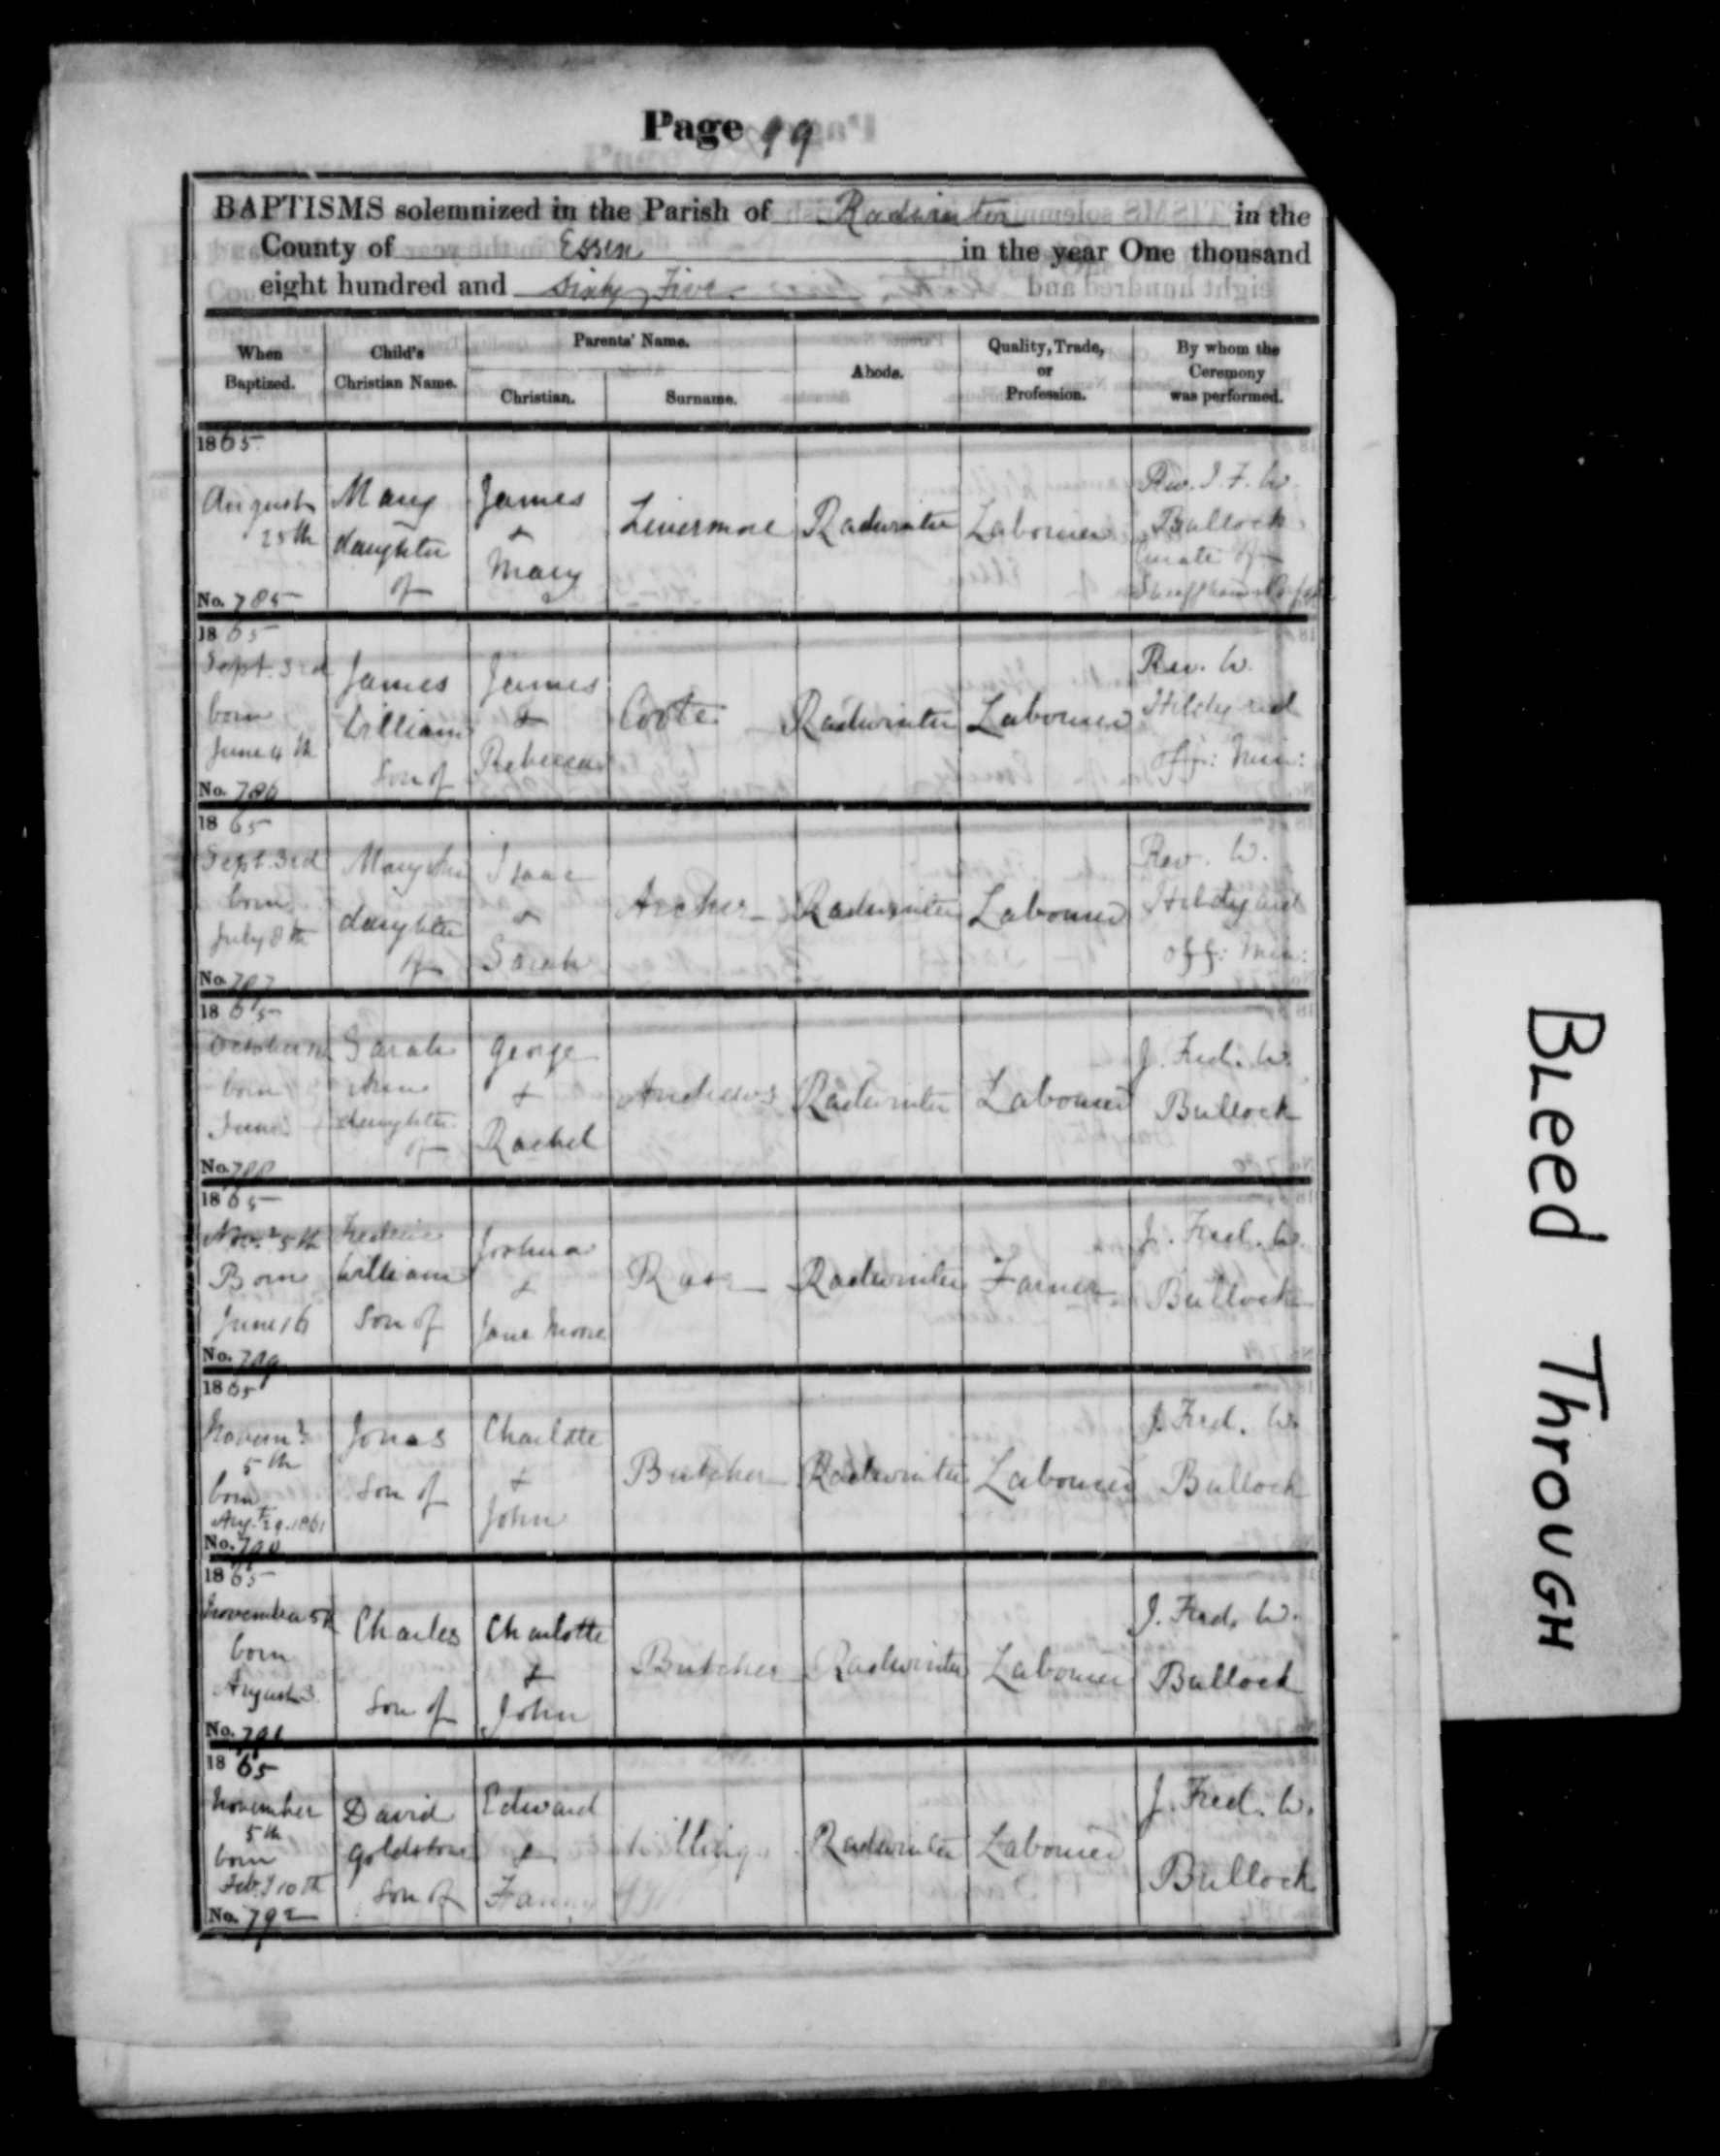 Page 99
BAPTISMS solemnized in the Parish of Radwinter in the
County of Essex in the year One thousand
eight hundred and Sixty Five
When Baptized.
Child's Christian Name.
Parents' Name.
Christian.
Surname.
Abode.
Quality, Trade, or Profession.
By whom the Ceremony was performed.
1865
August 25th
No. 785
Mary
daughter
of
James
+
Mary
Livermore
Radwinter
Labourer
Rev. J. F. W.
Bullock
Curate of
1865
Sept. 3rd
born
June 4th
No. 786
James
William
Son of
James
+
Rebecca
Coote
Radwinter
Labourer
Rev. W.
Hildyard
off: Min:
1865
Sept. 3rd
born
July 8th
No. 787
Mary Ann
daughter
of
Isaac
+
Sarah
Archer
Radwinter
Labourer
Rev. W.
Hildyard
off: Min:
1865
October
born
June
No. 788
Sarah
Ann
daughter
of
George
+
Rachel
Andrews
Radwinter
Labourer
J. Fred. W.
Bullock
1865
Novr 5th
Born
June 16
No. 789
Frederic
William
Son of
Joshua
+
Jane Moore
Radwinter
Farmer
J. Fred. W.
Bullock
1865
Novem
5th
born
Augt 29. 1861
No. 790
Jonas
Son of
Charlotte
+
John
Butcher
Radwinter
Labourer
J. Fred. W.
Bullock
1865
November 5th
born
August 3
No. 791
Charles
Son of
Charlotte
+
John
Butcher
Radwinter
Labourer
J. Fred. W.
Bullock
1865
November
5th
born
Feby 10th
No. 792
David
Goldstone
Son of
Edward
+
Fanny
Willings
Radwinter
Labourer
J. Fred. W.
Bullock
BLeed ThrouGH